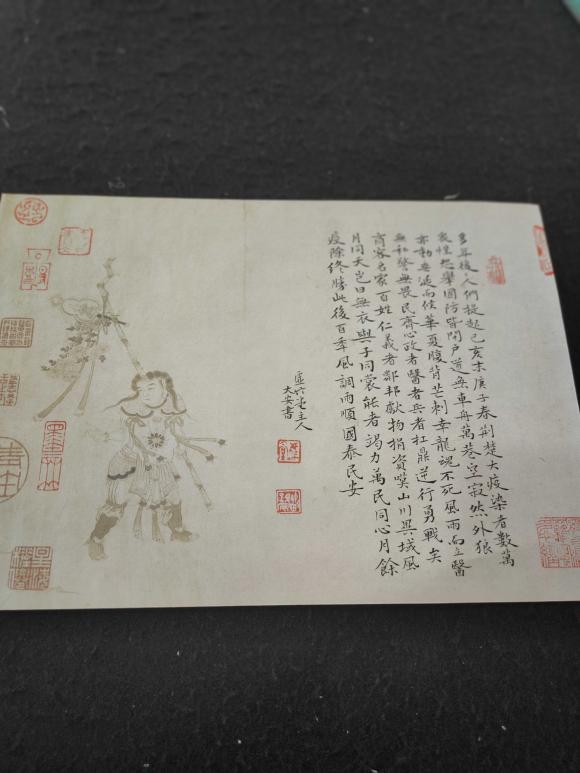 多年後人們提起己亥末庚子春荆楚大疫染者數萬
衆惶恐舉國防皆閉戶道無車舟萬巷空寂然外狼
亦動 華夏腹背芒刺幸龍魂不死風雨而立醫
無私警無畏民齊心政者醫者兵者扛鼎逆行勇戰矣
商客名家百姓仁義者鄰邦獻物捐資嘆山川異域風
月同天豈曰無衣與子同裳能者竭力萬民同心月餘
疫除終勝此後百年風調雨順國泰民安
主人
大安書